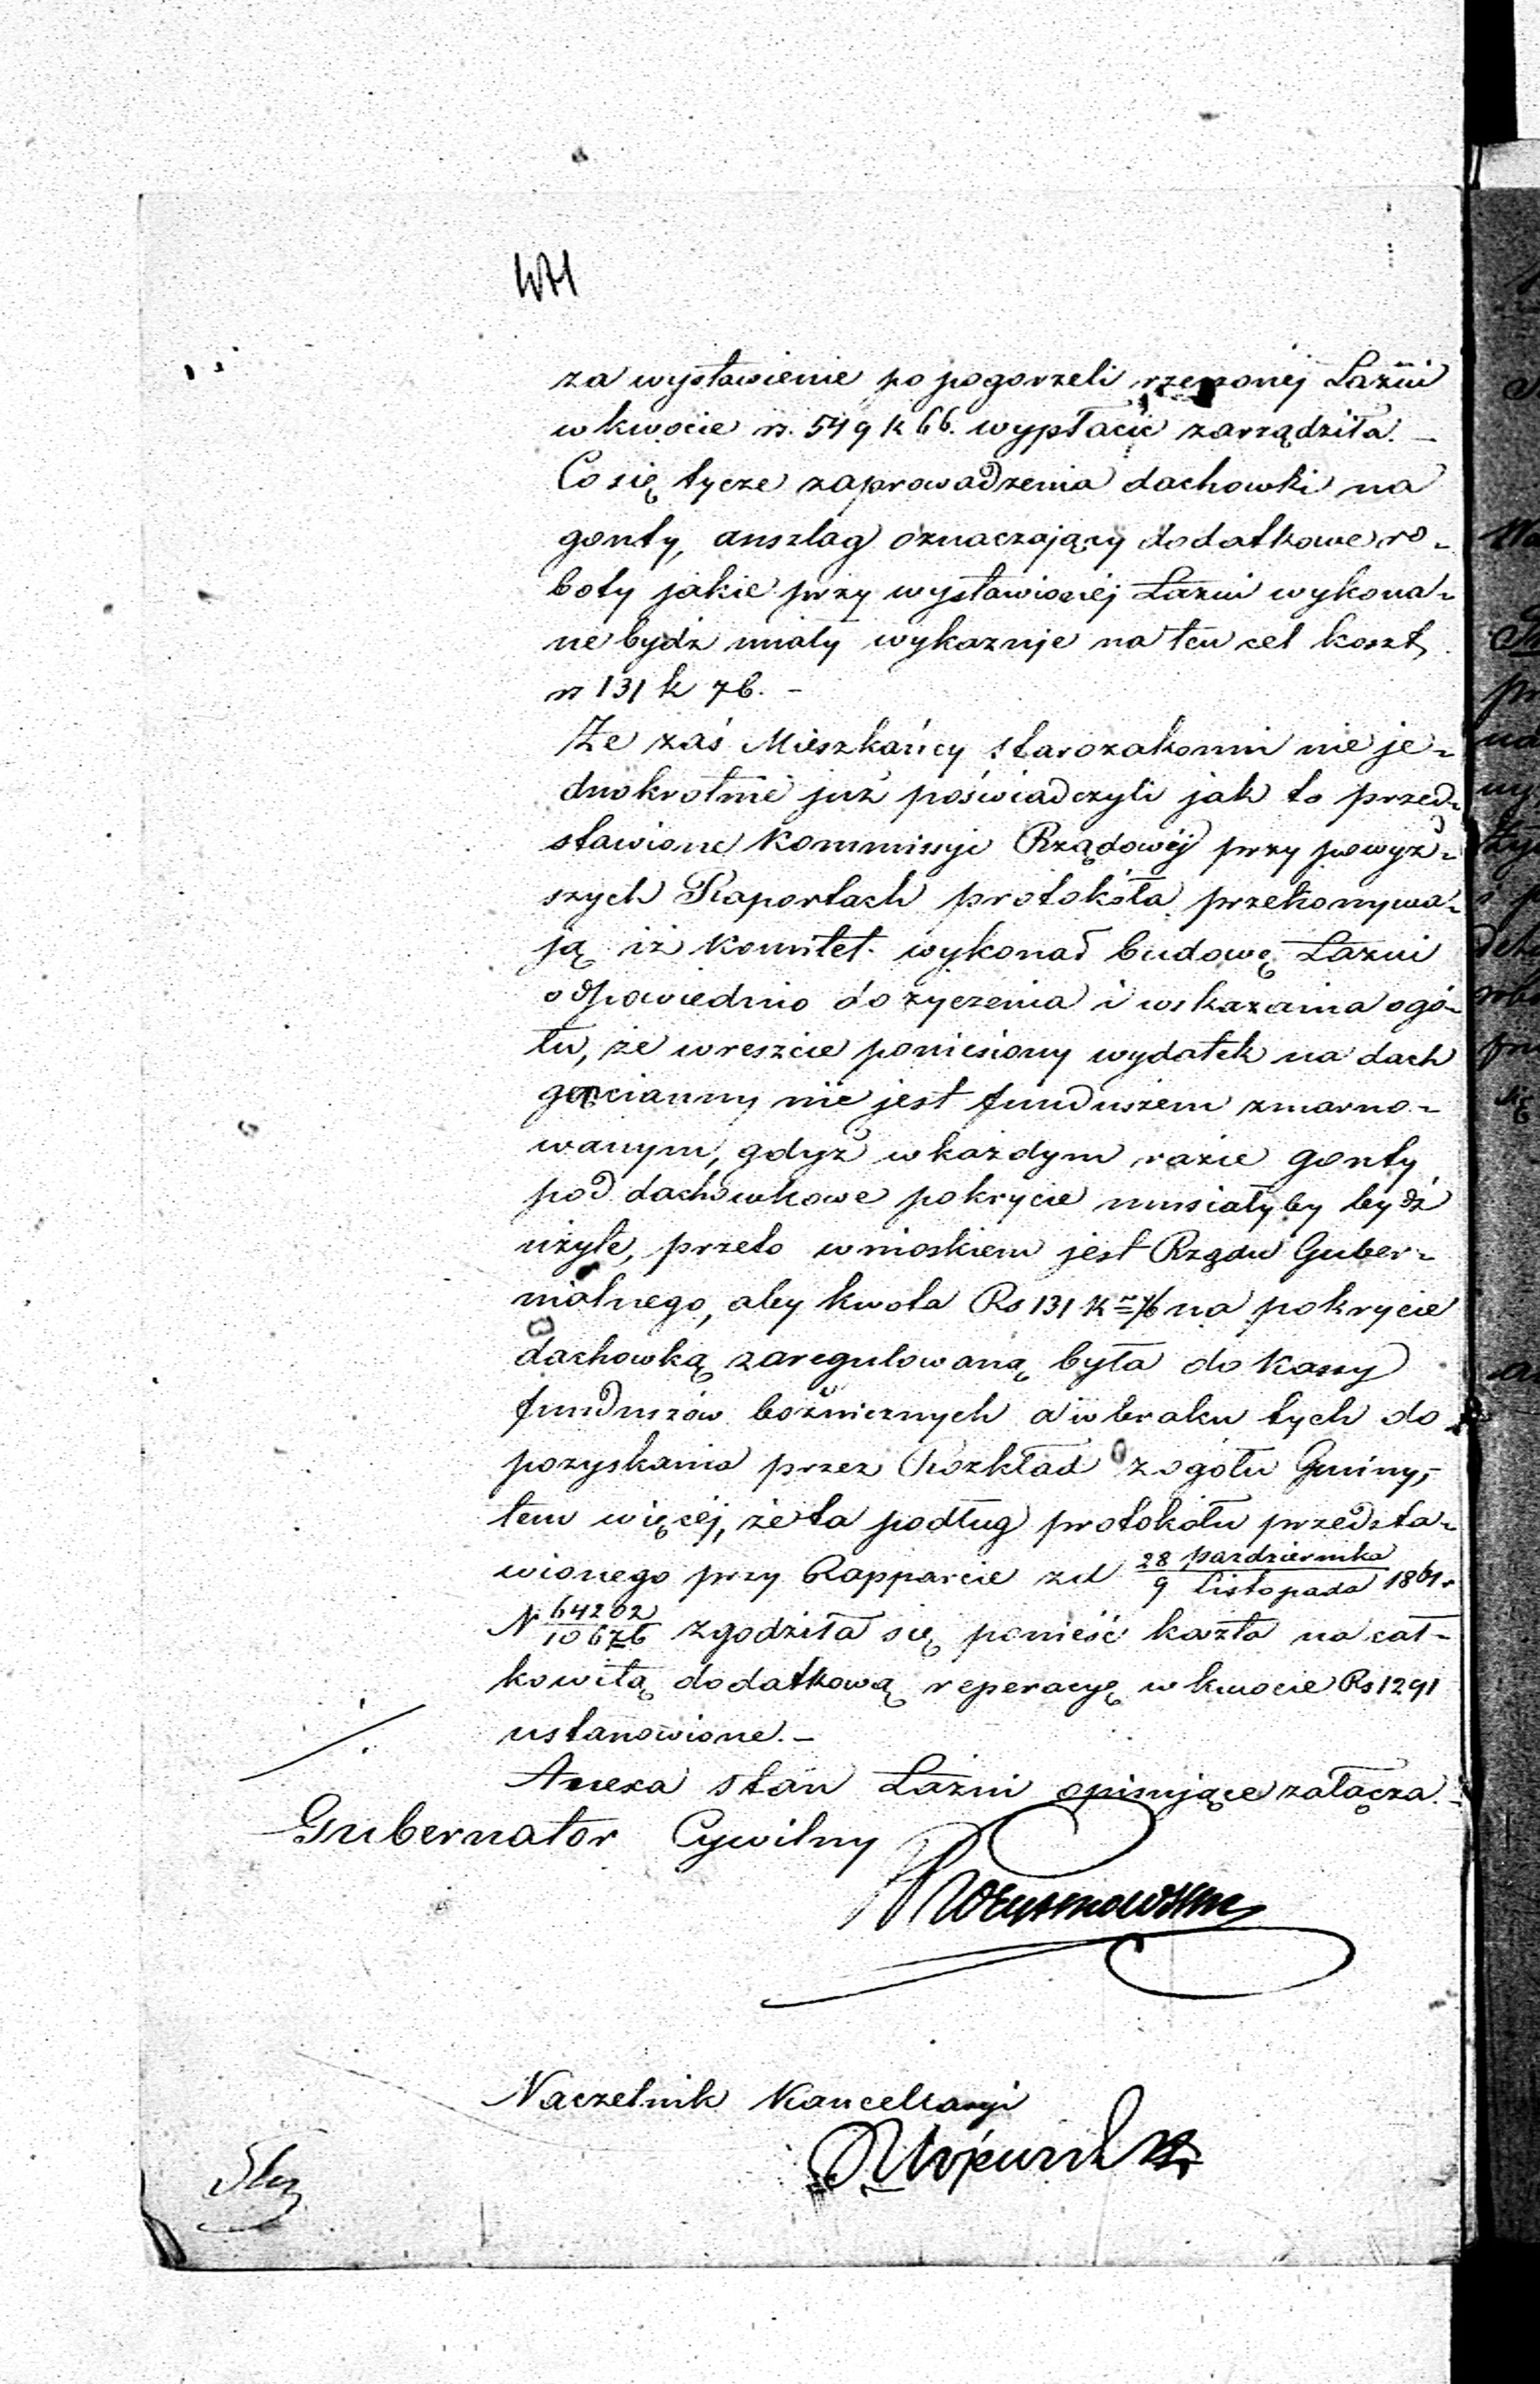 za wystawienie po pogorzeli rzeczonéj Łaźni
w kwocie rs. 549 k 66. wypłacić zarządziła. –
Co się tycze zaprowadzenia dachowki na
gonty, anszlag oznaczający dodatkowe ro-
boty jakie przy wystawionéj Łazni wykona-
ne bydz miały wykazuje na ten cel koszt
rs 131 k 76. –
Ze zaś Mieszkańcy starozakonni nie je-
dnokrotnie już poświadczyli jak to przed-
stawione Kommissyi Rządowéj przy powyz-
szych Raportach protokóła przekonywa-
ją iż Komitet wykonał budowę Łazni
odpowiednio do zyczenia i wskazania ogó-
łu, że wreszcie poniesiony wydatek na dach
gęcianny nie jest funduszem zmarno-
wanym, gdyż w każdym razie gonty
pod dachówkowe pokrycie musiałyby bydź
użyte, przeto wnioskiem jest Rządu Guber-
nialnego, aby kwota Rs 131 k 76 na pokrycie
dachowką zaregulowaną była do kassy
funduszów bożnicznych a w braku tych do
pozyskania przez Rozkład z ogółu Gminy,-
tem więcéj, że ta podług protokółu przedsta-
wionego przy Rapporcie z d 28 pazdziernika / 9 Listopada 1861 r
N 64202 / 10676 zgodziła się ponieść koszta na cał-
kowitą dodatkową reperacyę w kwocie Rs 1291
ustanowione. –
Anexa stan Łazni opiniujące załącza. –
Gubernator Cywilny
Naczelnik Kancellaryi